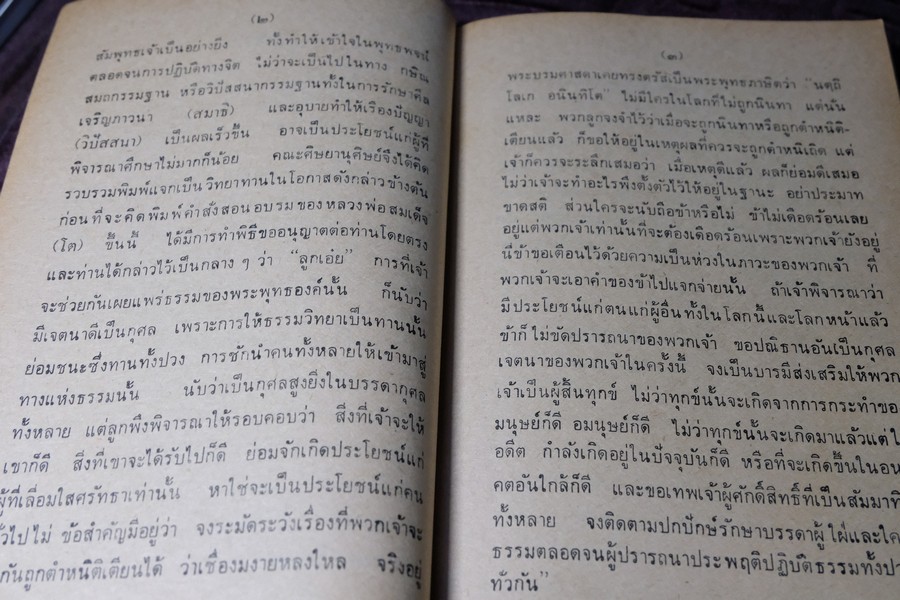 (๒)
สัมพุทธเจ้าเป็นอย่างยิ่ง ทั้งทำให้เข้าใจในพุทธพจน์
ตลอดจนการปฏิบัติทางจิต ไม่ว่าจะเป็นไปในทาง กษิณ
สมถกรรมฐาน หรือวิปัสสนากรรมฐานทั้งในการรักษาศีล
เจริญภาวนา (สมาธิ) และอุบายทำให้เรืองปัญญา
(วิปัสสนา) เป็นผลเร็วขึ้น อาจเป็นประโยชน์แก่ผู้ที่
พิจารณาศึกษาไม่มากก็น้อย คณะศิษยานุศิษย์จึงได้คิด
รวบรวมพิมพ์แจกเป็นวิทยาทานในโอกาสดังกล่าวข้างต้น
ก่อนที่จะคิดพิมพ์คำสั่งสอนอบรมของหลวงพ่อสมเด็จ
(โต) ขึ้นนี้ ได้มีการทำพิธีขออนุญาตต่อท่านโดยตรง
และท่านได้กล่าวไว้เป็นกลาง ๆ ว่า “ลูกเอ๋ย” การที่เจ้า
จะช่วยกันเผยแพร่ธรรมของพระพุทธองค์นั้น ก็นับว่า
มีเจตนาดีเป็นกุศล เพราะการให้ธรรมวิทยาเป็นทานนั้น
ย่อมชนะซึ่งทานทั้งปวง การชักนำคนทั้งหลายให้เข้ามาสู่
ทางแห่งธรรมนั้น นับว่าเป็นกุศลสูงยิ่งในบรรดากุศล
ทั้งหลาย แต่ลูกพึงพิจารณาให้รอบคอบว่า สิ่งที่เจ้าจะให้
เขาก็ดี สิ่งที่เขาจะได้รับไปก็ดี ย่อมจักเกิดประโยชน์แก่
ผู้ที่เลื่อมใสศรัทธาเท่านั้น หาใช่จะเป็นประโยชน์แก่คน
ทั่วไปไม่ ข้อสำคัญมีอยู่ว่า จงระมัดระวังเรื่องที่พวกเจ้าจะ
กันถูกตำหนิติเตียนได้ ว่าเชื่องมงายหลงใหล จริงอยู่
(๓)
พระบรมศาสดาเคยทรงตรัสเป็นพระพุทธภาษิตว่า “นตฺถิ
โลเก อนินฺทิโต” ไม่มีใครในโลกที่ไม่ถูกนินทา แต่นั่น
แหละ พวกลูกจงจำไว้ว่าเมื่อจะถูกนินทาหรือถูกตำหนิติ-
เตียนแล้ว ก็ขอให้อยู่ในเหตุผลที่ควรจะถูกตำหนิเถิด แต่
เจ้าก็ควรจะระลึกเสมอว่า เมื่อเหตุดีแล้ว ผลก็ย่อมดีเสมอ
ไม่ว่าเจ้าจะทำอะไรพึงตั้งตัวไว้ให้อยู่ในฐานะ อย่าประมาท
ขาดสติ ส่วนใครจะนับถือข้าหรือไม่ ข้าไม่เดือดร้อนเลย
อยู่แต่พวกเจ้าเท่านั้นที่จะต้องเดือดร้อนเพราะพวกเจ้ายังอยู่
นี่ข้าขอเตือนไว้ด้วยความเป็นห่วงในภาวะของพวกเจ้า ที่
พวกเจ้าจะเอาคำของข้าไปแจกจ่ายนั้น ถ้าเจ้าพิจารณาว่า
มีประโยชน์แก่ตนแก่ผู้อื่นทั้งในโลกนี้และโลกหน้าแล้ว
ข้าก็ไม่ขัดปรารถนาของพวกเจ้า ขอปณิธานอันเป็นกุศล
เจตนาของพวกเจ้าในครั้งนี้ จงเป็นบารมีส่งเสริมให้พวก
เจ้าเป็นผู้สิ้นทุกข์ ไม่ว่าทุกข์นั้นจะเกิดจากการกระทำขอ
มนุษย์ก็ดี อมนุษย์ก็ดี ไม่ว่าทุกข์นั้นจะเกิดมาแล้วแต่ใ
อดีต กำลังเกิดอยู่ในปัจจุบันก็ดี หรือที่จะเกิดขึ้นในอน
คตอันใกล้ก็ดี และขอเทพเจ้าผู้ศักดิ์สิทธิ์ที่เป็นสัมมาทิ
ทั้งหลาย จงติดตามปกปักษ์รักษาบรรดาผู้ใฝ่และใค
ธรรมตลอดจนผู้ปรารถนาประพฤติปฏิบัติธรรมทั้งปว
ทั่วกัน”